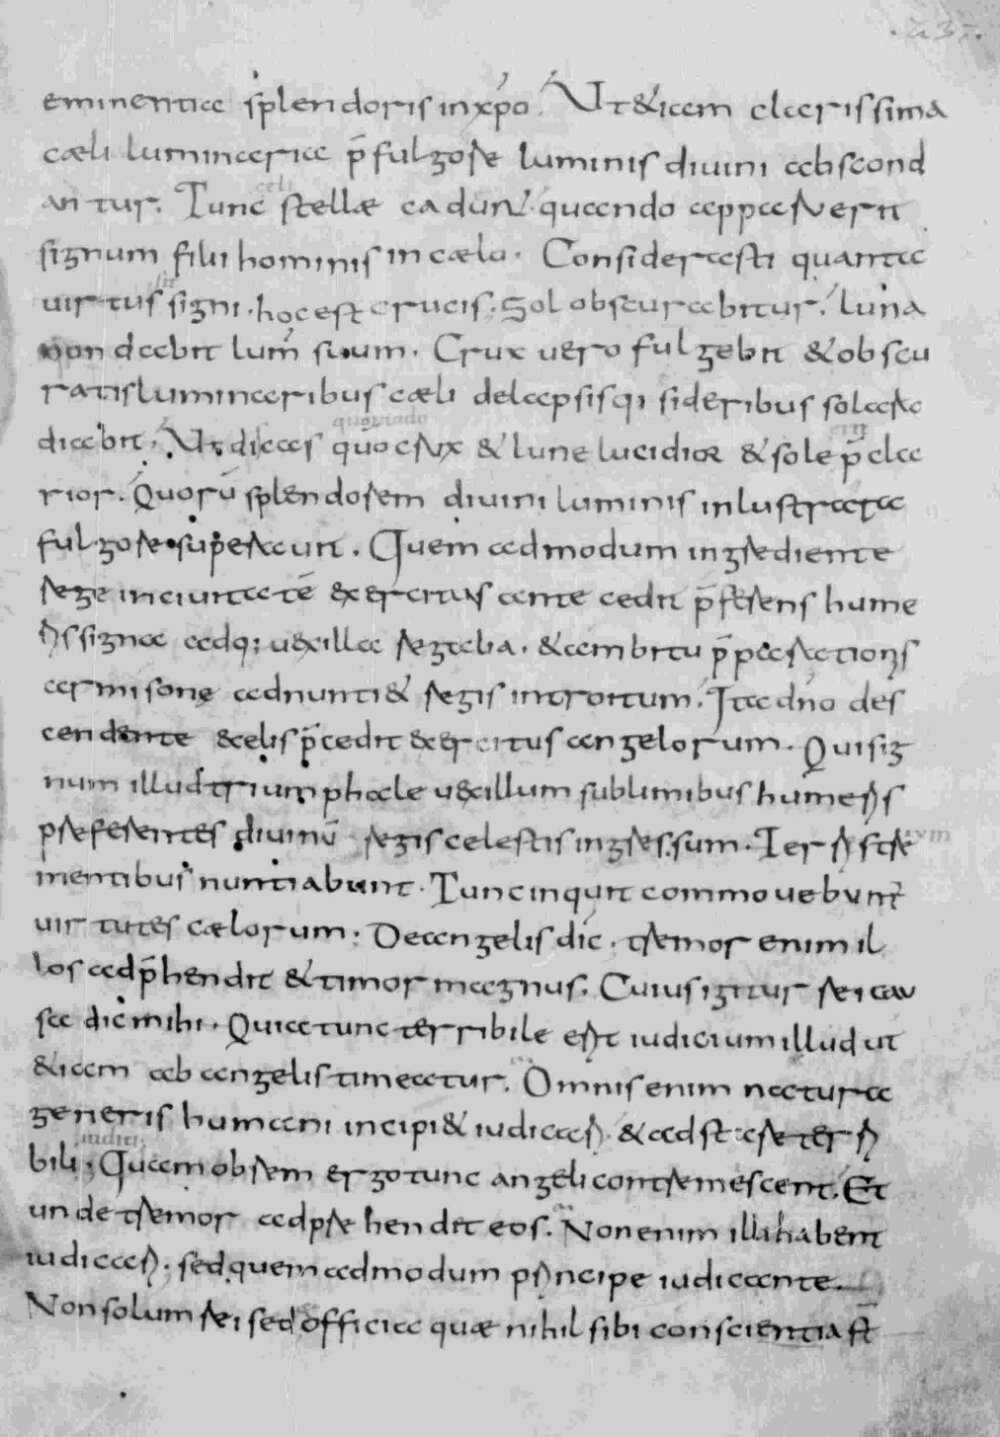 .237.
eminentia splendoris in xp̄o. Ut &iam clarissima
cæli luminaria p̄fulgore luminis diuini abscond
antur. Tunc stellæ cadunt quando apparuerit
celi
signum filii hominis in cælo. Considerasti quanta
uirtus signi. hoc est crucis. Sol obscurabitur. luna
sit
non dabit lum̄ suum. Crux uero fulgebit & obscu
ratis luminaribus cæli delapsisq; sideribus sola ra
diabit. Ut dicas quō crux & lune lucidior & sole p̄cla
quomodo erit
rior. Quorū splendorem diuini luminis inlustrata
fulgore superauit. Quem admodum ingrediente
rege in ciuitatē exercitus ante cedit p̄ferens hume
ris signa adq; uexilla regalia. & ambitu p̄parationis
armisone adnunti& regis introitum. Ita dn̄o des
cendente e celis p̄cedit exercitus angelorum. Qui sig
num illud triumphale uexillum sublimibus humeris
preferentes diuinū regis celestis ingressum. Terris tre
mentibus nuntiabunt. Tunc inquit commouebunt̄
uirtutes cælorum. De angelis dic. tremor enim il
los adp̄hendit & timor magnus. Cuius igitur rei cau
sa dic mihi. Quia tunc terribile erit iudicium illud ut
&iam ab angelis timeatur. Omnis enim natura
generis humani incipi& iudicari. & adstare terri
bili. Quam ob rem ergo tunc angeli contremescent. Et
iudici
unde tremor adprehendit eos. Non enim illi habent
iudicari. sed quem admodum principe iudicante.
Non solum rei sed officia quæ nihil sibi conscientia st̄